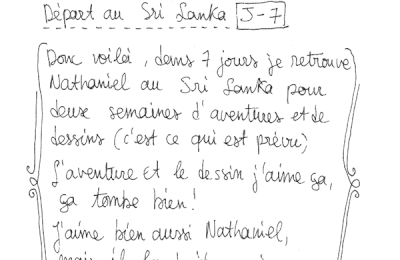 Départ au Sri Lanka J-7
Donc voilà, dans 7 jours je retrouve
Nathaniel au Sri Lanka pour
deux semaines d'aventures et de
dessins (c'est ce qui est prévu)
L'aventure et le dessin j'aime ça,
ça tombe bien!
J'aime bien aussi Nathaniel,
mais il